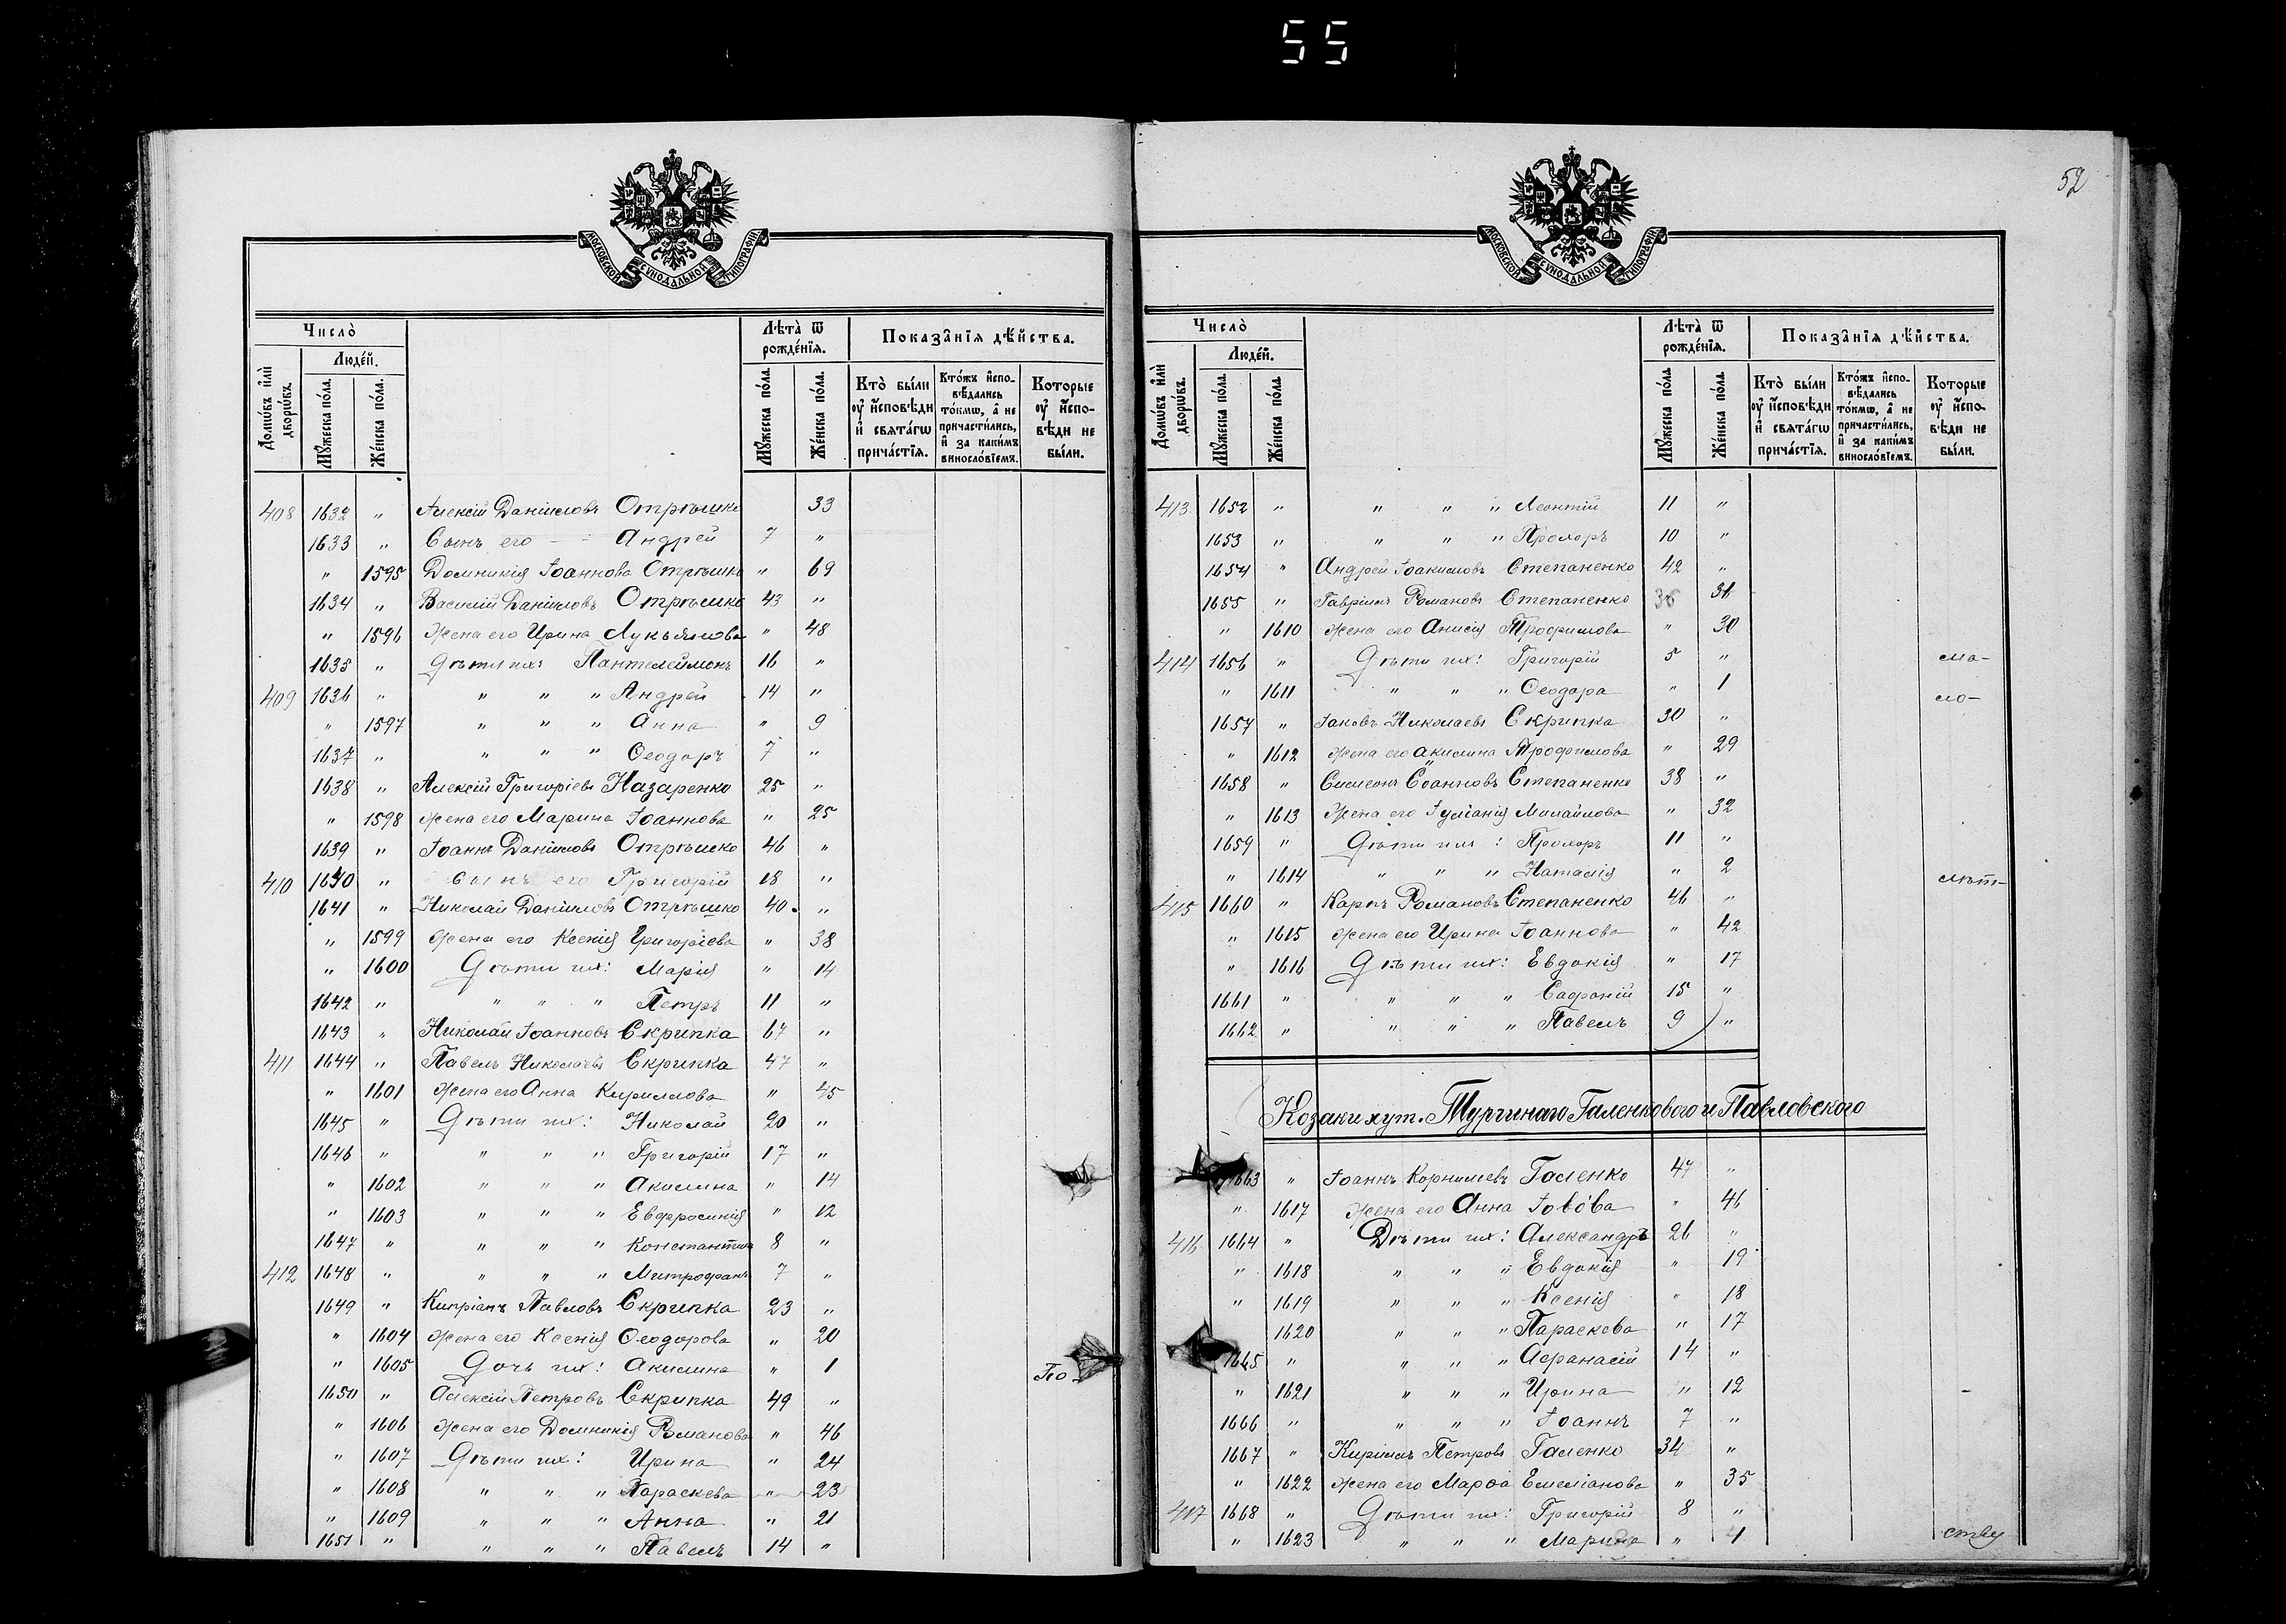 55
МОСКОВСКОЙ СУНОДАЛЬНОЙ ТИПОГРАФІИ
Число̀
Людéй.
Домѡ́въ и҆лѝ дворѡ́въ.
Мꙋ́жеска по́ла.
Же́нска по́ла.
Лѣ́та ѿ рожде́нїѧ.
Мꙋ́жеска по́ла.
Же́нска по́ла.
Показа̑нїѧ дѣ́йства.
Кто̀ бы́ли ᲂу҆ и҆́сповѣди и҆ свѧта́гѡ прича́стїѧ.
Кто́жъ и҆спо-вѣ́дались то́кмѡ, а҆ не причасти́лись, и҆ за каки́мъ виносло́вїемъ.
Которые ᲂу҆ и҆́спо-вѣди не бы́ли.
408 1632 " Алексій Даніиловъ Отрѣшко 33
1633 " Сынъ его - - Андрей 7 "
" 1595 Домникія Іоаннова Отрѣшко " 69
1634 " Василій Даніиловъ Отрѣшко 43 "
" 1596 Жена его Ирина Лукьянова " 48
1635 " Дѣти ихъ Пантелеймонъ 16 "
409 1636 " " " " Андрей 14 "
" 1597 " " " Анна " 9
1637 " " " " Ѳеодоръ 7 "
1638 " Алексій Григоріевъ Назаренко 25 "
" 1598 Жена его Марина Іоаннова " 25
1639 " Іоаннъ Даніиловъ Отрѣшко 46 "
410 1640 " Сынъ его Григорій 18 "
1641 " Николай Даніиловъ Отрѣшко 40 "
" 1599 Жена его Ксенія Григоріева " 38
" 1600 Дѣти их: Марія " 14
1642 " " " " Петръ 11 "
1643 " Николай Іоанновъ Скрипка 67 "
411 1644 " Павелъ Николаевъ Скрипка 47 "
" 1601 Жена его Анна Кириллова " 45
1645 " Дѣти их: Николай 20 "
1646 " " " " Григорій 17 "
" 1602 " " " Акилина " 14
" 1603 " " " Евфросинія " 12
1647 " " " " Константинъ 8 "
412 1648 " " " " Митрофанъ 7 "
1649 " Кипріанъ Павловъ Скрипка 23 "
" 1604 Жена его Ксенія Ѳеодорова " 20
" 1605 Дочь их: Акилина " 1 По
1650 " Алексій Петровъ Скрипка 49 "
" 1606 Жена его Домникія Романова " 46
" 1607 Дѣти их: Ирина " 24
" 1608 " " " Параскева " 23
" 1609 " " " Анна " 21
1651 " " " " Павелъ 14 "
52
МОСКОВСКОЙ СУНОДАЛЬНОЙ ТИПОГРАФІИ
Число̀
Людéй.
Домѡ́въ и҆лѝ дворѡ́въ.
Мꙋ́жеска по́ла.
Же́нска по́ла.
Лѣ́та ѿ рожде́нїѧ.
Мꙋ́жеска по́ла
Же́нска по́ла.
Показа̑нїѧ дѣ́йства.
Кто̀ бы́ли ᲂу҆ и҆́сповѣди и҆ свѧта́гѡ прича́стїѧ.
Кто́жъ и҆спо-вѣ́дались то́кмѡ, а҆ не причасти́лись, и҆ за каки́мъ виносло́вїемъ.
Которые ᲂу҆ и҆́спо-вѣди не бы́ли.
413 1652 " " " " Леонтій 11 "
1653 " " " " Прохоръ 10 "
1654 " Андрей Іоакимовъ Степаненко 42 "
1655 " Гавріилъ Романовъ Степаненко 31
" 1610 Жена его Анисія Трофимова " 30
414 1656 " Дѣти их: Григорій 5 " ма-
" 1611 " " " Ѳеодора " 1 ло-
1657 " Іаковъ Николаевъ Скрипка 30 "
" 1612 Жена его Акилина Трофимова " 29
1658 " Симеонъ Іоанновъ Степаненко 38 "
" 1613 Жена его Іуліанія Михайлова " 32
1659 " Дѣти их: Прохоръ 11 "
" 1614 " " " Наталія " 2 лѣт-
415 1660 " Карпъ Романовъ Степаненко 46 "
" 1615 Жена его Ирина Іоаннова " 42
" 1616 Дѣти их: Евдокія " 17
1661 " " " " Сафроній 15 "
1662 " " " " Павелъ 9 "
Козаки хут. Тургинаго Галенкового и Павловского
1663 " Іоаннъ Корниліевъ Галенко 47 "
" 1617 Жена его Анна Іовова " 46
416 1664 " Дѣти их: Александръ 26 "
" 1618 " " " Евдокія " 19
" 1619 " " " Ксенія " 18
1620 " " " Параскева " 17
1665 " " " " Афанасій 14 "
" 1621 " " " Ирина " 12 -
1666 " " " " Іоаннъ 7 "
1667 " Кирилъ Петровъ Галенко 34 "
" 1622 Жена его Марѳа Емеліанова " 35
417 1668 " Дѣти их: Григорій 8 "
" 1623 " " " Марина " 1 ству